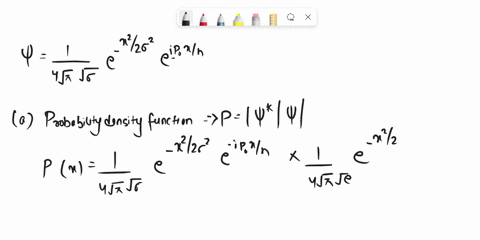 ψ = 1/(4√π √σ) e^(-x²/2σ²) e^(iP₀x/n)
(a) Probability density function → P = |ψ*|ψ|
P(x) = 1/(4√π √σ) e^(-x²/2σ²) e^(-iP₀x/n) × 1/(4√π √e) e^(-x²/2)